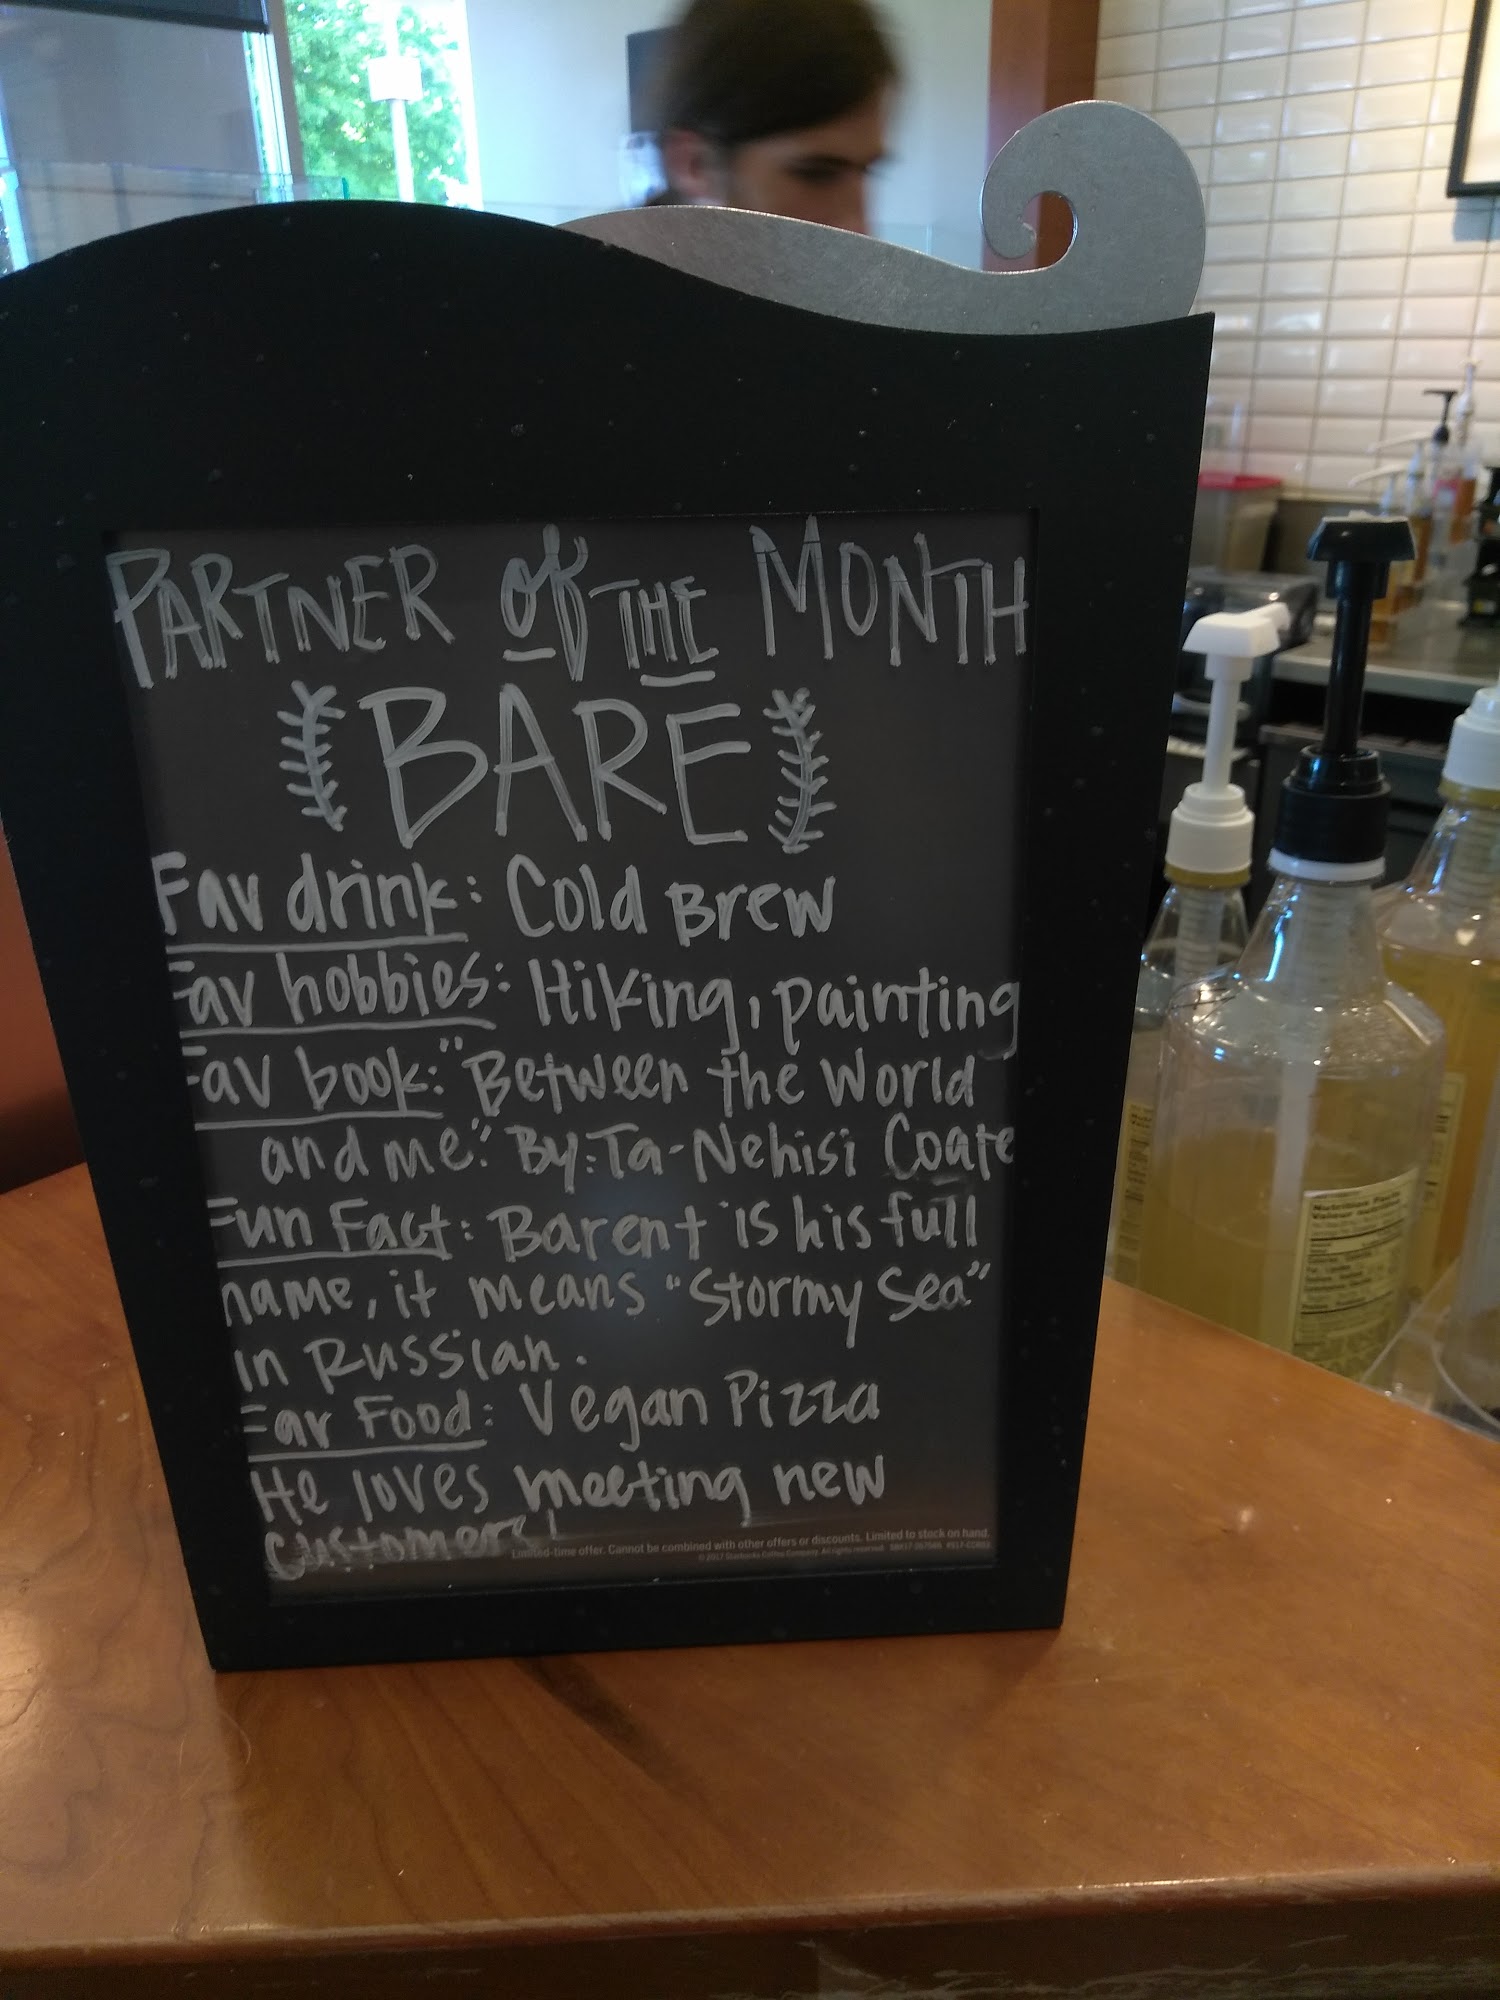 PARTNER of THE MONTH
BARE
Fav drink: Cold Brew
Fav hobbies: Hiking, painting
Fav book: "Between the World
and me." By: Ta-Nehisi Coate
Fun Fact: Barent is his full
name, it means "Stormy Sea"
in Russian.
Fav Food: Vegan Pizza
He loves meeting new
customers!
Limited-time offer. Cannot be combined with other offers or discounts. Limited to stock on hand.
© 2017 Starbucks Coffee Company. All rights reserved.
Nutrition Facts
Valeur nutritive